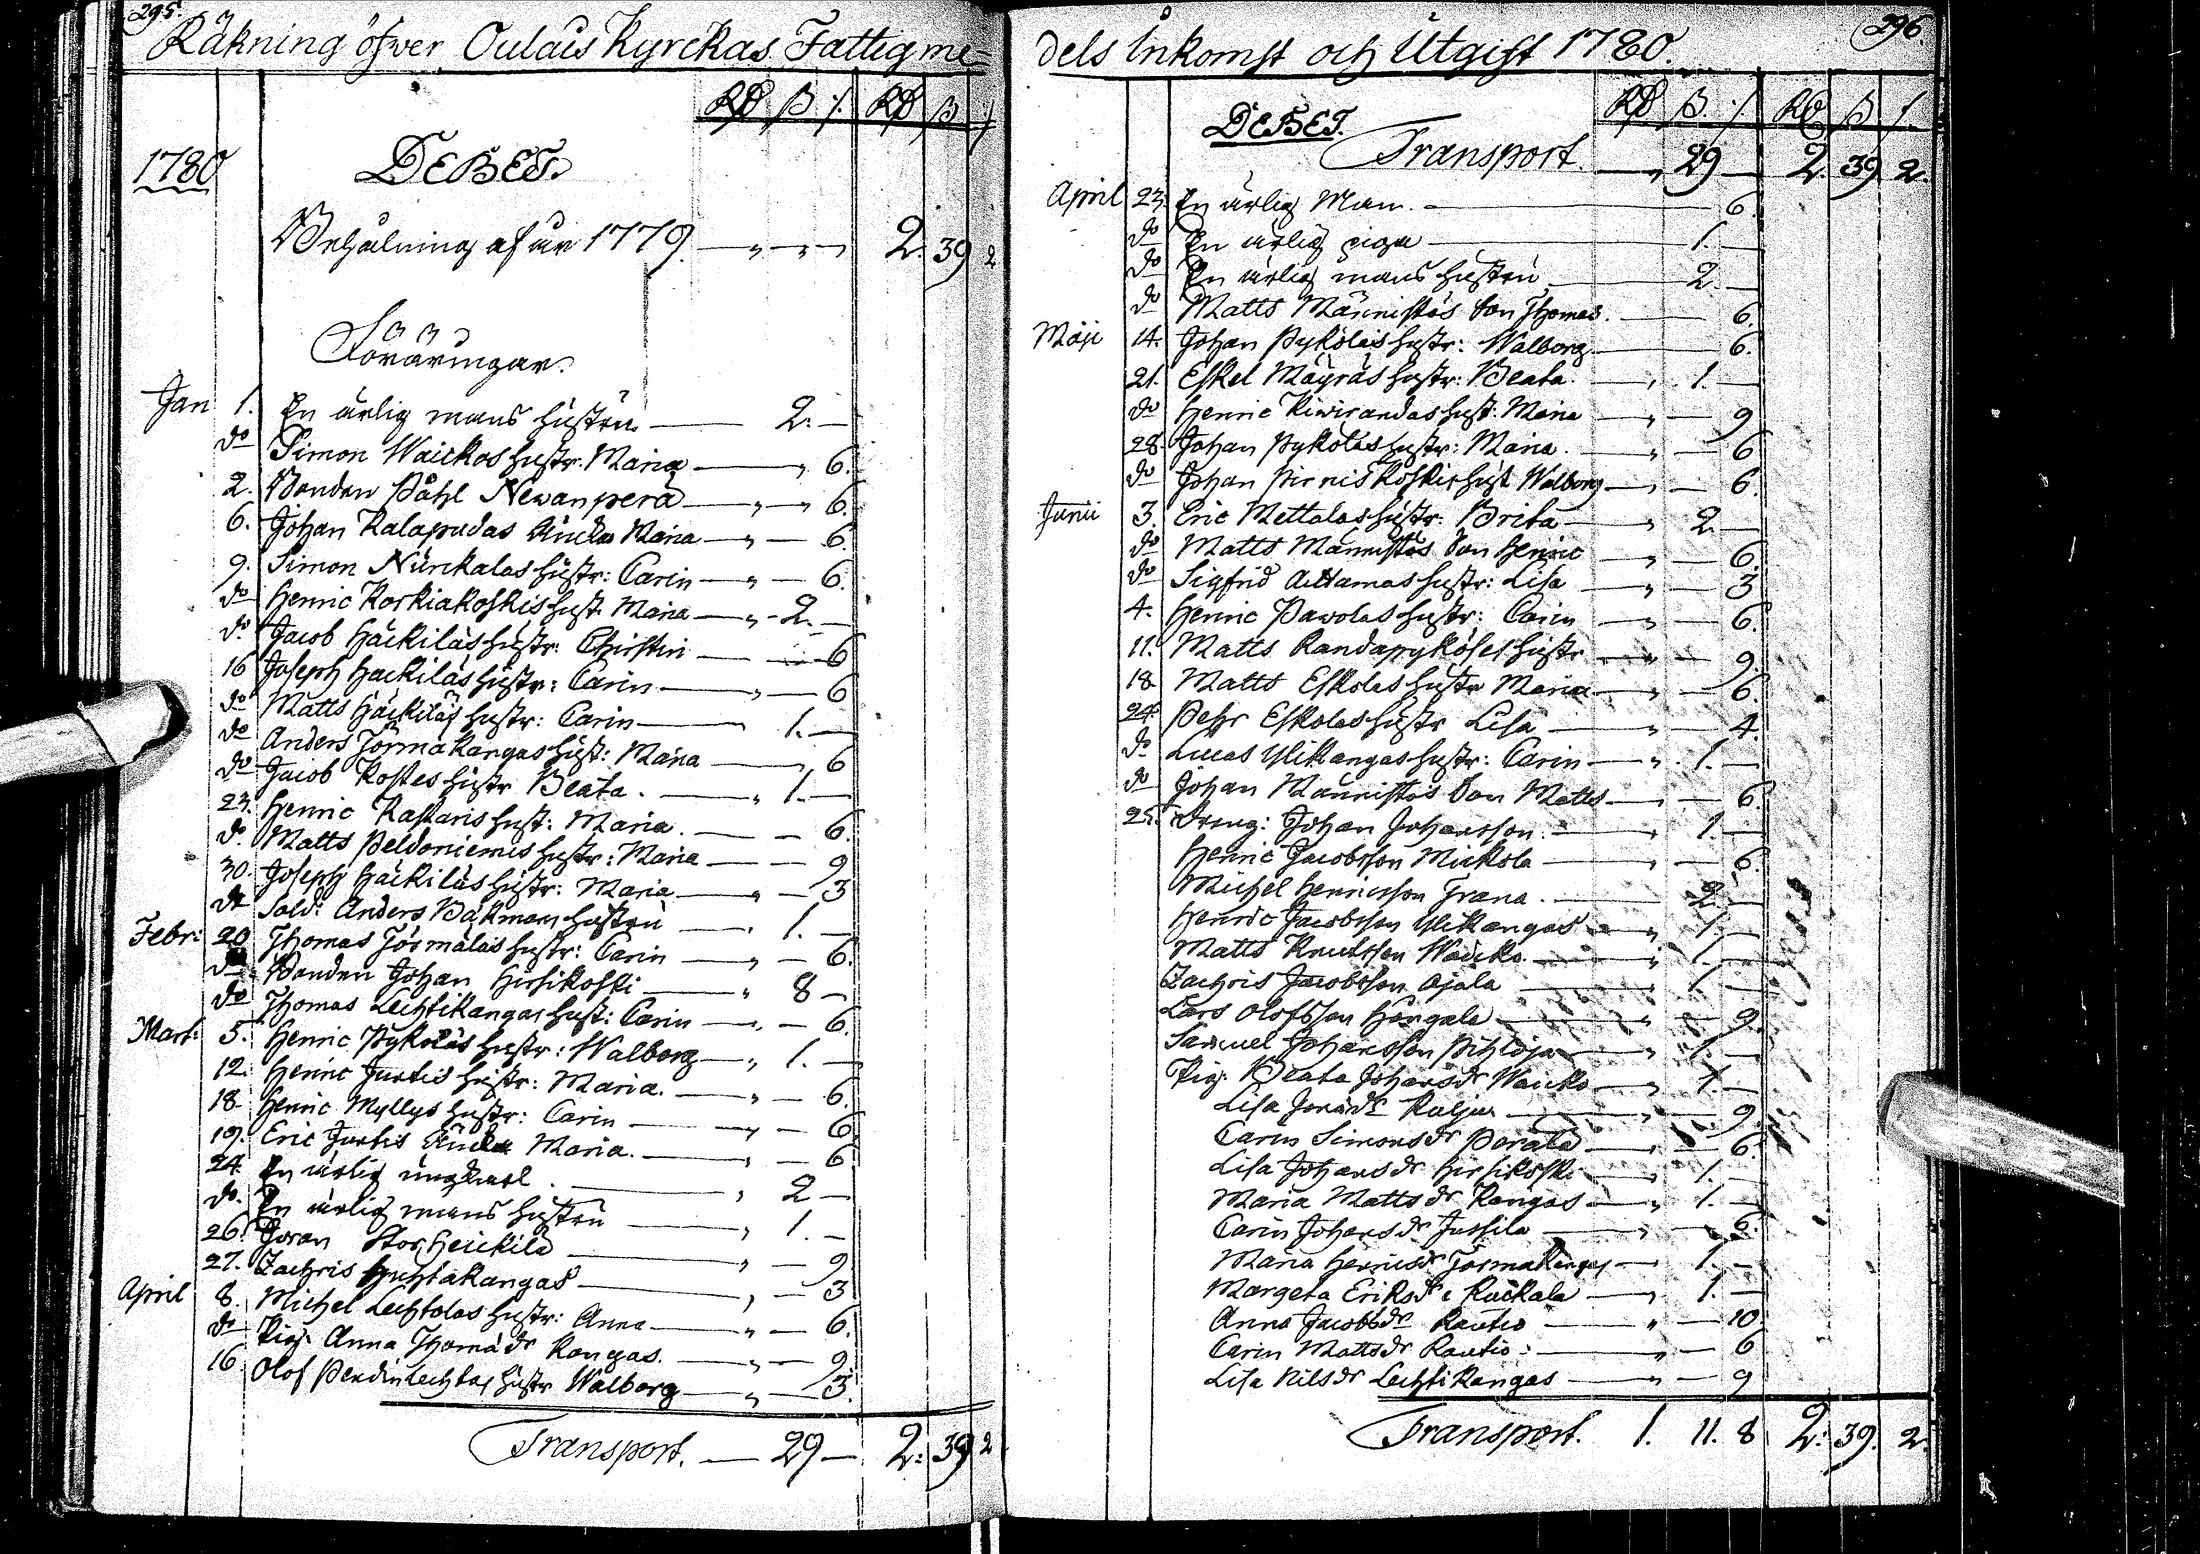 295.
Räkning öfwer Oulais Kyrckas Fattigme=
Rd ß ſ. Rd ß ſ
1780 DEBET.
Behålning af år 1779. — „ — „ — 2. 39 2
Föräringar.
Jan 1. En ärlig mans hustru — 2. —
do Simon Waickos hustr. Maria — „ 6.
2. Bonden Påhl Newanperä — „ — 6.
6. Johan Kalapudas Änka Maria — „ — 6.
9. Simon Nurckalas hustr: Carin — „ — 6.
do Henric Korkiakoskis hust. Maria — „ - 2. —
do Jacob Häckiläs hustr: Christin — 6
16 Joseph Häckiläs hustr: Carin — „ — 6
do Matts Häckiläs hustr: Carin — „ 1. —
do Anders Jormakangas hust: Maria — „ 6
do Jacob Kostes hustr Beata. — „ 1. —
23. Henric Kastaris hust: Maria. — — 6.
do Matts Peldoniemis hustr: Maria — — 9
30. Joseph Häckiläs hustr: Maria — „ — 3
do Sold: Anders Bäckmans hustru — „ 1. —
Febr: 20 Thomas Jormälas hustr: Carin — „ — 6.
do Bonden Johan Hirsikoski — „ 8 —
do Thomas Lechtikangas hust: Carin — „ — 6.
Mart: 5. Henric Pyköläs hustr: Walborg — „ 1. —
12. Henric Jurtis hustr: Maria. — „ — 6.
18. Henric Myllys hustr: Carin — „ — 6
19. Eric Jurtis Änka Maria. — „ — 6
24. En ärlig ungkarl. — „ 2 —
do. En ärlig mans hustru — „ 1. —
26. Jöran Storheickilä — „ — 9
27. Zachris Huhtakangas — „ — 3
April 8. Michel Lechtolas hustr: Anna — „ — 6.
do Pig. Anna Thomædr Kangas. — „ — 9.
16. Olof Perdinlechtas hustr Walborg — „ — 3.
Transport. — 29 — 2. 39 2
296.
dels Inkomst och Utgift 1780.
Rd ß. ſ Rd ß ſ.
DEBET.
Transport. — „ 29 — 2. 39 2.
April 23. En ärlig Man. — 6.
do En ärlig piga — 1. —
do En ärlig mans hustru — 2. —
do Matts Männistös Son Thomas. — 6.
Maji 14. Johan Pyköläs hustr: Walborg — 6.
21. Eskel Mäyräs hustr: Beata. — „ 1. —
do Henric Kiwirandas hust: Maria — „ — 9
28. Johan Pykolas hustr: Maria. — „ — 6
do Johan Pirniskoskis hust Walborg — „ — 6.
Junii 3. Eric Mettalas hustr: Brita — „ 2 —
do Matts Männistös Son Henric — „ — 6.
do Sigfrid Alttamas hustr: Lisa — „ — 3
4. Henric Pawolas hustr: Carin — „ — 6.
11. Matts Randapyköles hustr — „ — 9.
18. Matts Eskolas hustr Maria — „ — 6.
24. Pehr Eskolas hustr Lisa — „ 4.
do Lucas Ylikangas hustr: Carin — „ 1. —
do Johan Männistös Son Matts — „ — 6
25. Dreng: Johan Johansson. — „ 1. —
Henric Jacobsson Mickola — „ — 6.
Michel Henricsson Trana. — 2. —
Henric Jacobsson Ylikangas — „ 1. —
Matts Knutsson Waicko — „ 1. —
Zachris Jacobsson Ojala — „ 1. —
Lars Olofsson Hongala — „ — 9.
Samuel Johansson Pihloja — „ 1. —
Pig. Beata Johansdr Waicko — „ 1. —
Lisa Jonædr Kulju — „ 9.
Carin Simonsdr Porala — „ — 6.
Lisa Johansdr Hirsikoski — „ 1. —
Maria Mattsdr Kangas — „ 1. —
Carin Johansdr Jussila — „ — 6.
Maria Henricsdr Jormakangas — „ 1. —
Margeta Eriksdr Kackala — „ 1. —
Anna Jacobsdr Rautio — „ — 10
Carin Mattsdr Rautio: — „ — 6
Lisa Nilsdr Lechtikangas — „ — 9
Transport. 1. 11. 8 2. 39. 2.